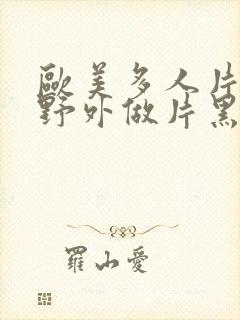 歐美多人片
野外做片黑
羅山愛